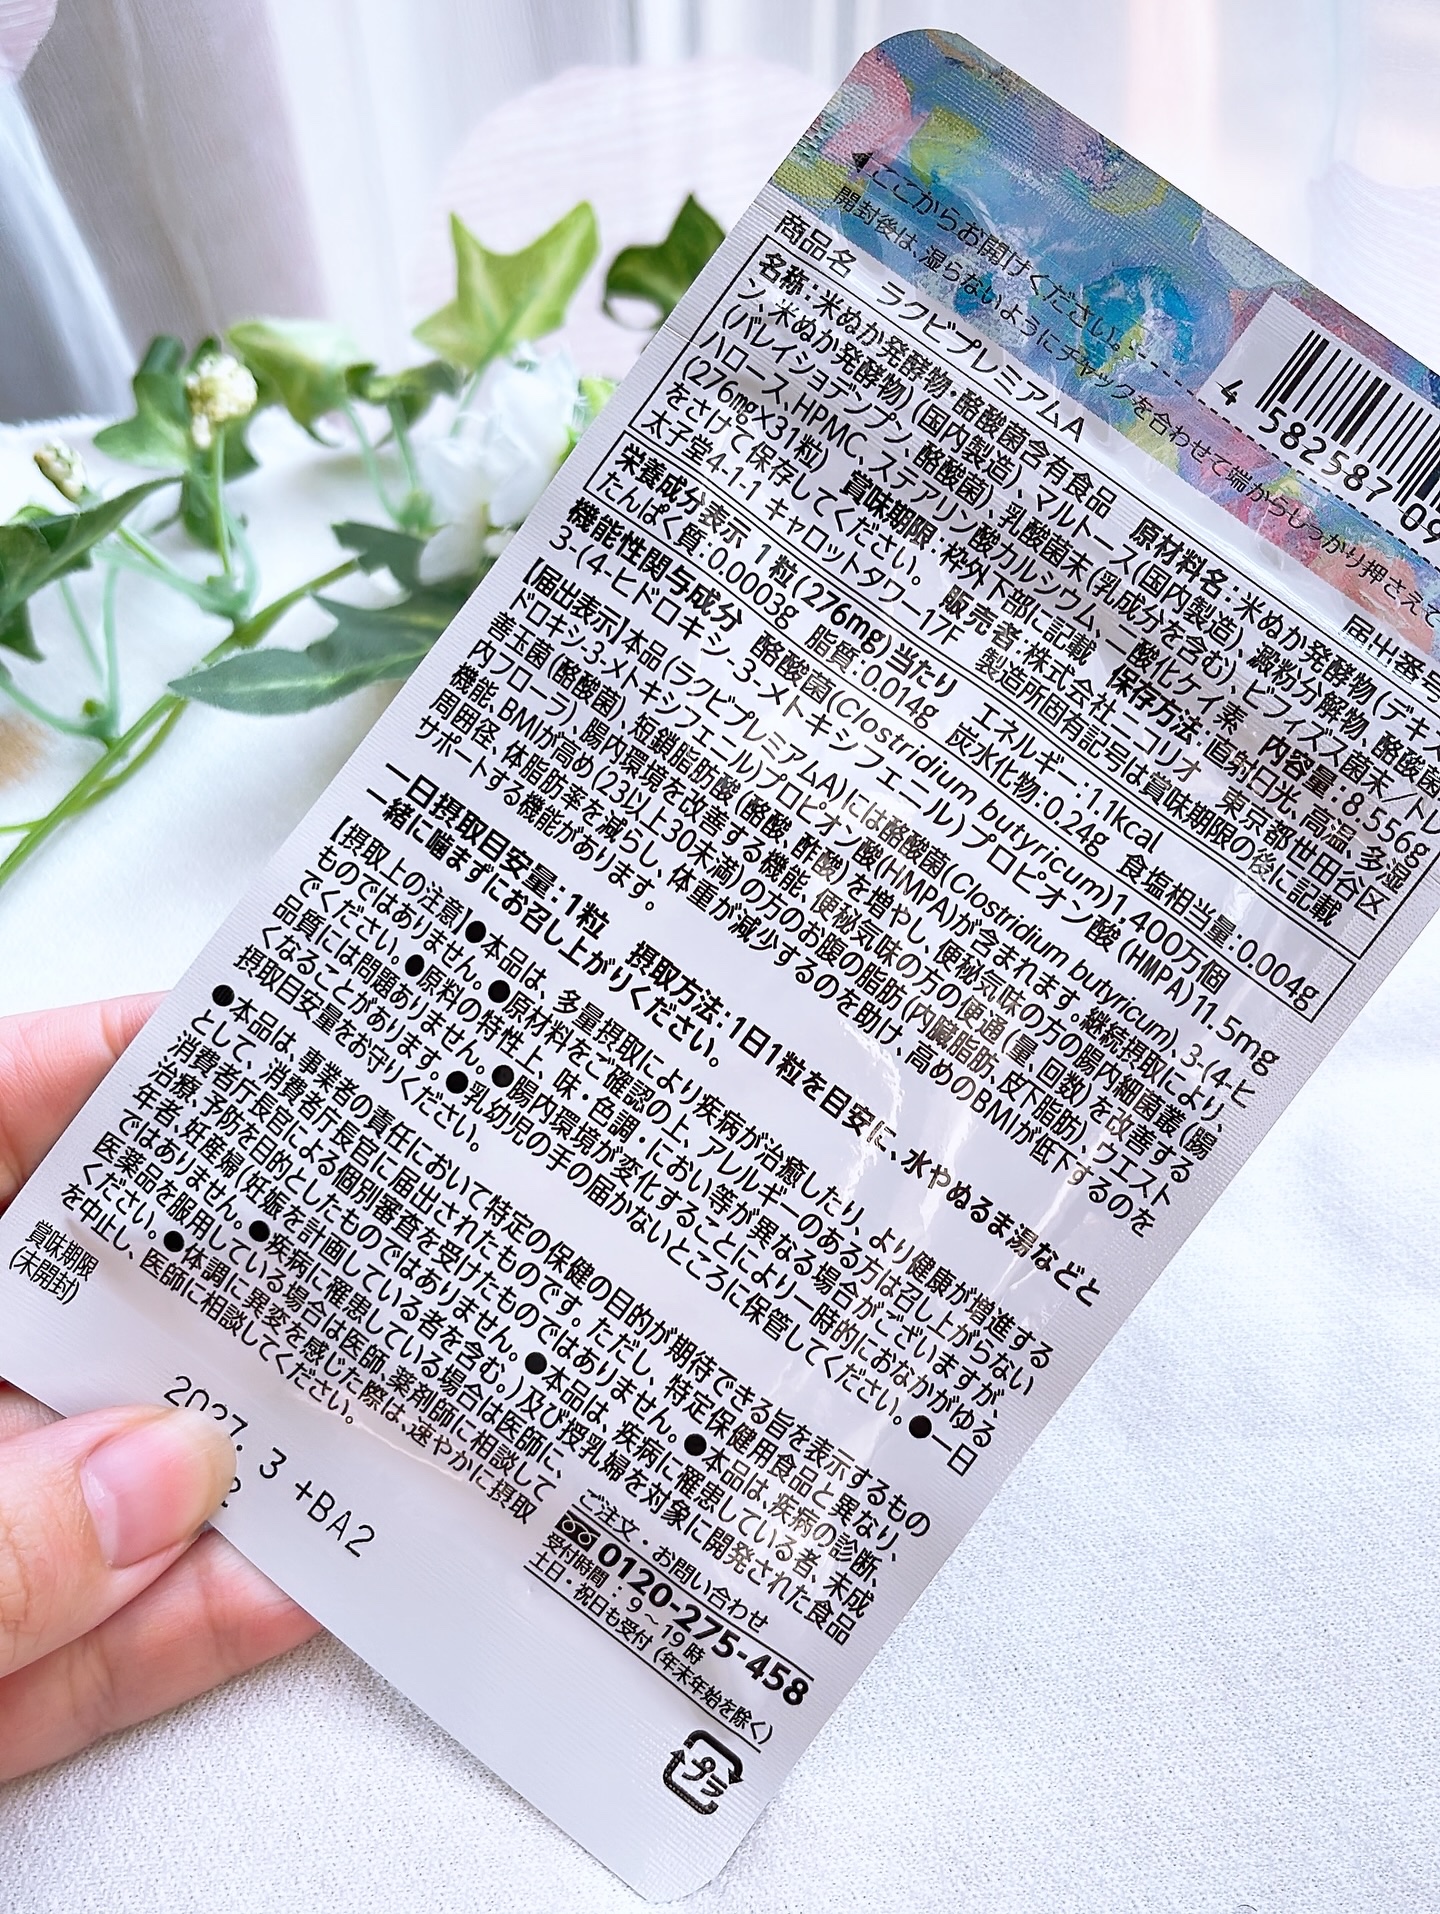 ここからお開けください。
開封後は、湿らないようにチャックを合わせて端からしっかり押さえて
4 582587 09
届出番号
商品名 ラクビプレミアムA
名称：米ぬか発酵物・酪酸菌含有食品 原材料名：米ぬか発酵物(デキス
ン、米ぬか発酵物)(国内製造)、マルトース(国内製造)、澱粉分解物、酪酸菌
(バレイショデンプン、酪酸菌)、乳酸菌末(乳成分を含む)、ビフィズス菌末／トレ
ハロース、HPMC、ステアリン酸カルシウム、二酸化ケイ素 内容量：8.556g
(276㎎×31粒) 賞味期限：枠外下部に記載 保存方法：直射日光、高温、多湿
をさけて保存してください。 販売者：株式会社ニコリオ 東京都世田谷区
太子堂4-1-1 キャロットタワー17F 製造所固有記号は賞味期限の後に記載
栄養成分表示 1粒(276mg)当たり エネルギー：1.1kcal
たんぱく質：0.0003g 脂質：0.014g 炭水化物：0.24g 食塩相当量：0.004g
機能性関与成分 酪酸菌(Clostridium butyricum)1,400万個
3-(4-ヒドロキシ-3-メトキシフェニル)プロピオン酸(HMPA)11.5mg
【届出表示】本品(ラクビプレミアムA)には酪酸菌(Clostridium butyricum)、3-(4-ヒ
ドロキシ-3-メトキシフェニル)プロピオン酸(HMPA)が含まれます。継続摂取により、
善玉菌(酪酸菌)、短鎖脂肪酸(酪酸、酢酸)を増やし、便秘気味の方の腸内細菌叢(腸
内フローラ)、腸内環境を改善する機能、便秘気味の方の便通(量、回数)を改善する
機能、BMIが高め(23以上30未満)の方のお腹の脂肪(内臓脂肪、皮下脂肪)、ウエスト
周囲径、体脂肪率を減らし、体重が減少するのを助け、高めのBMIが低下するのを
サポートする機能があります。
一日摂取目安量：1粒 摂取方法：1日1粒を目安に、水やぬるま湯などと
一緒に噛まずにお召し上がりください。
【摂取上の注意】●本品は、多量摂取により疾病が治癒したり、より健康が増進する
ものではありません。●原材料をご確認の上、アレルギーのある方は召し上がらない
でください。●原料の特性上、味・色調・におい等が異なる場合がございますが、
品質には問題ありません。●腸内環境が変化することにより一時的におなかがゆる
くなることがあります。●乳幼児の手の届かないところに保管してください。●一日
摂取目安量をお守りください。
●本品は、事業者の責任において特定の保健の目的が期待できる旨を表示するもの
として、消費者庁長官に届出されたものです。ただし、特定保健用食品と異なり、
消費者庁長官による個別審査を受けたものではありません。●本品は、疾病の診断、
治療、予防を目的としたものではありません。●本品は、疾病に罹患している者、未成
年者、妊産婦(妊娠を計画している者を含む。)及び授乳婦を対象に開発された食品
ではありません。●疾病に罹患している場合は医師に、
医薬品を服用している場合は医師、薬剤師に相談して
ください。●体調に異変を感じた際は、速やかに摂取
を中止し、医師に相談してください。
ご注文・お問い合わせ
0120-275-458
受付時間：9～19時
土日・祝日も受付(年末年始を除く)
プラ
賞味期限
(未開封)
2027. 3 +BA2